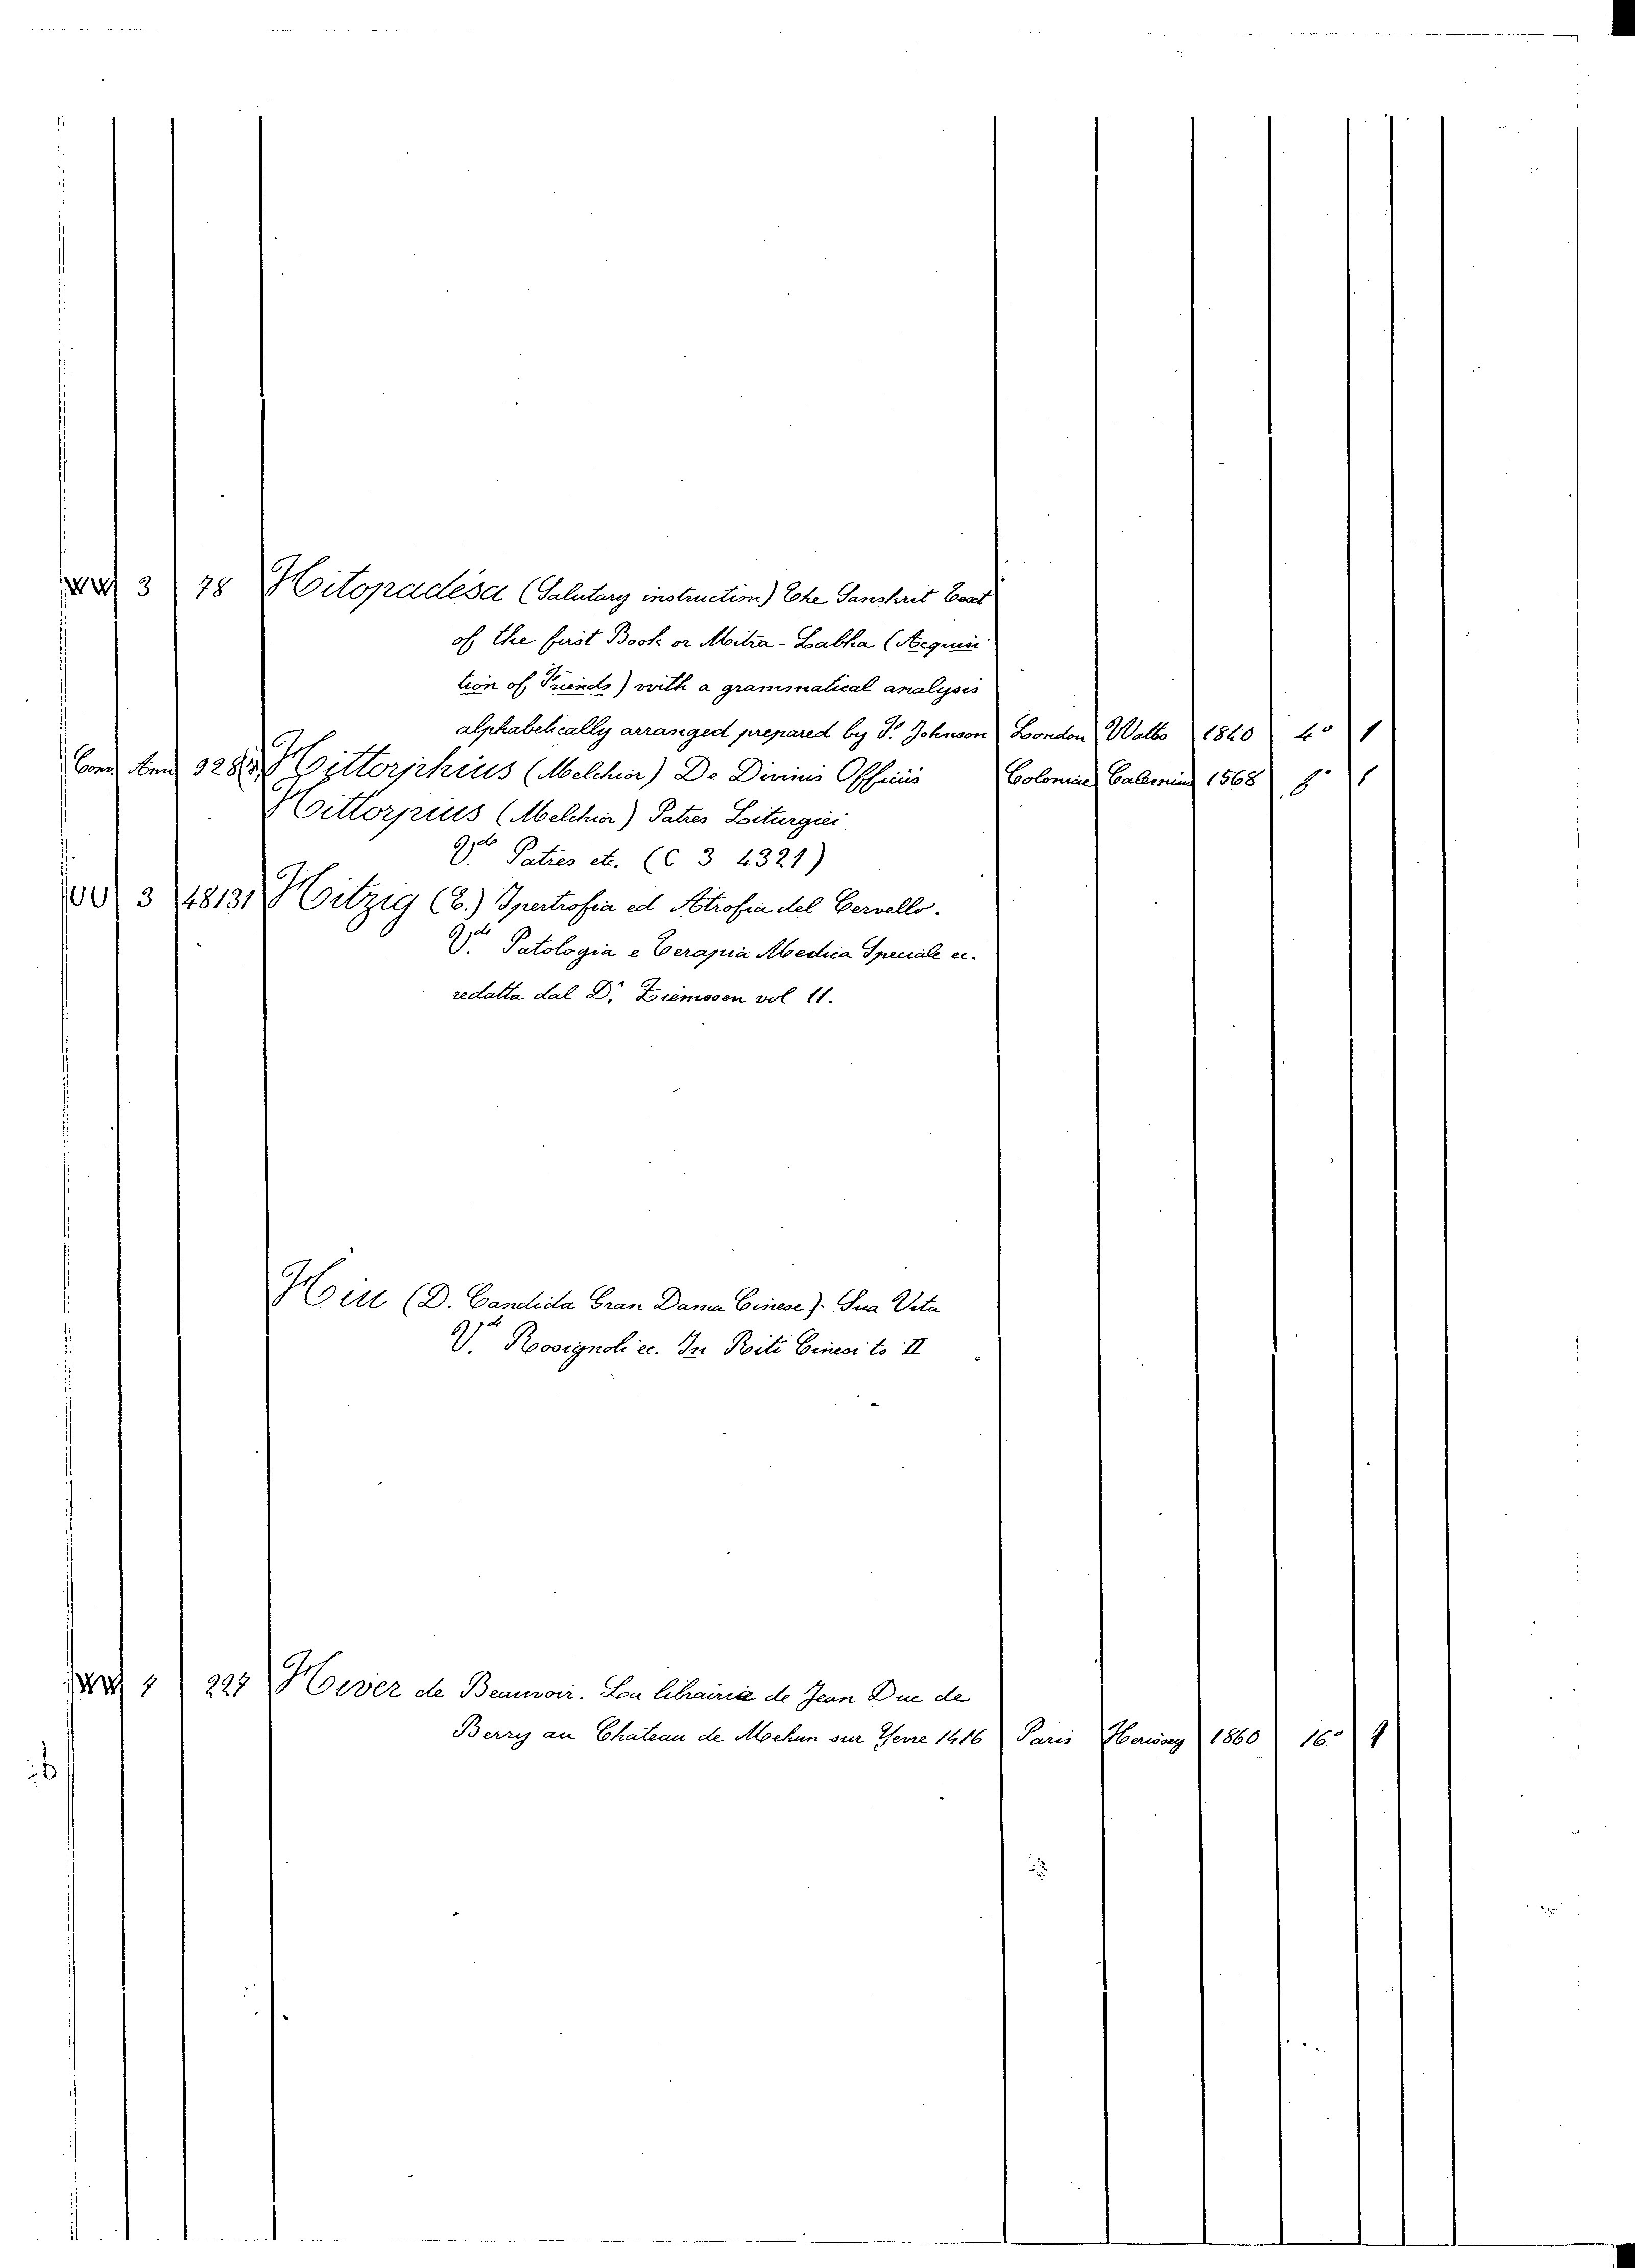 3 78 Hitopadésa (Salutary instruction) The Sanskrit Text
of the first Book or Mitra-Labha (Acquisi
tion of Friends) with a grammatical analysis
alphabetically arranged prepared by F. Johnson London Watts 1840 4° 1
Hittorphius (Melchior) De Divinis Officiis Coloniae Calenius 1568 8° 1
Hittorpius (Melchior) Patres Liturgici
V. Patres etc. (C 3 4321)
3 48131 Hitzig (E.) Ipertrofia ed Atrofia del Cervello.
V. Patologia e Terapia Medica Speciale ec.
redatta dal Dr. Ziemssen vol 11.
Hiu (D. Candida Gran Dama Cinese). Sua Vita
V. Rossignoli ec. In Riti Cinesi to II
227 Hiver de Beauvoir. La librairie de Jean Duc de
Berry au Chateau de Mehun sur Yevre 1416 Paris Herissey 1860 16° 1